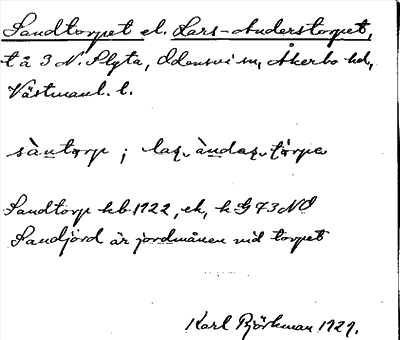 Sandtorpet el. Lars-Anderstorpet,
t å 3 N. Slyta, Odensvi sn, Åkerbo hd,
Västmanl. l.
sàntorp ; las, àndas, tórpa
Sandtorp hb 1922, ek, k G 73 NO
Sandjord är jordmånen vid torpet
Karl Björkman 1929.